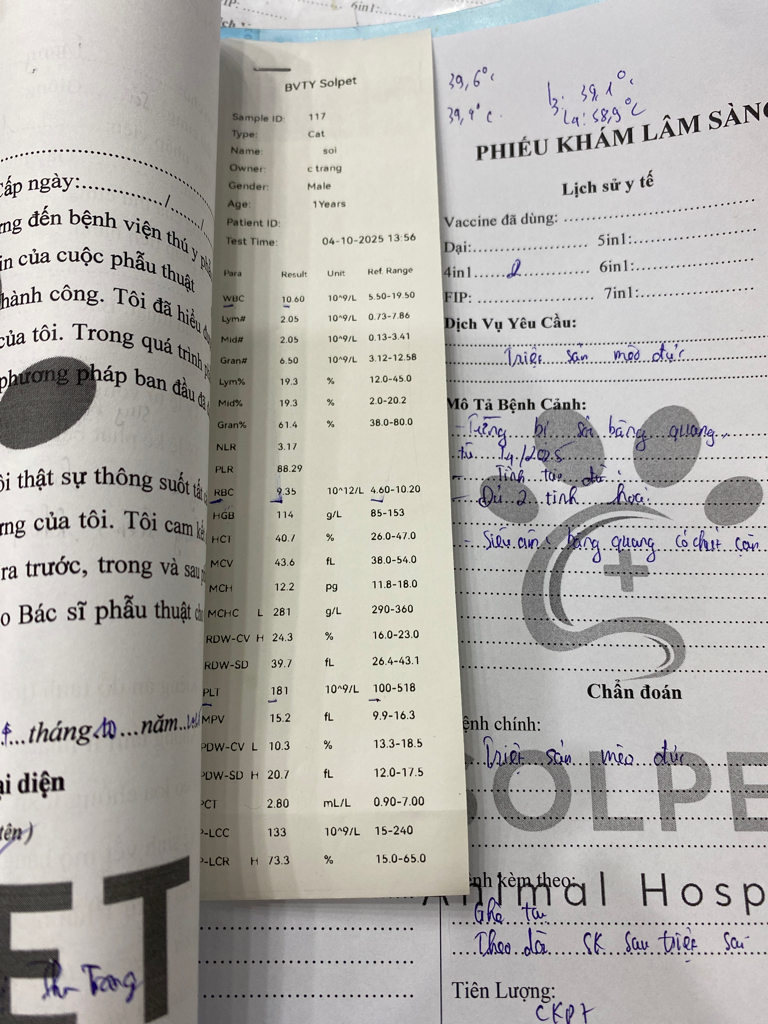 Cấp ngày:............/......./
ng đến bệnh viện thú y
in của cuộc phẫu thuật
hành công. Tôi đã hiểu
của tôi. Trong quá trình
phương pháp ban đầu đã
ôi thật sự thông suốt
ng của tôi. Tôi cam
ra trước, trong và sau
o Bác sĩ phẫu thuật
tháng 10 năm
ại diện
tên)
ET
Trang
BVTY Solpet
Sample ID: 117
Type: Cat
Name: soi
Owner: c trang
Gender: Male
Age: 1Years
Patient ID:
Test Time: 04-10-2025 13:56
Para Result Unit Ref. Range
WBC 10.60 10^9/L 5.50-19.50
Lym# 2.05 10^9/L 0.73-7.86
Mid# 2.05 10^9/L 0.13-3.41
Gran# 6.50 10^9/L 3.12-12.58
Lym% 19.3 % 12.0-45.0
Mid% 19.3 % 2.0-20.2
Gran% 61.4 % 38.0-80.0
NLR 3.17
PLR 88.29
RBC 9.35 10^12/L 4.60-10.20
HGB 114 g/L 85-153
HCT 40.7 % 26.0-47.0
MCV 43.6 fL 38.0-54.0
MCH 12.2 pg 11.8-18.0
MCHC L 281 g/L 290-360
RDW-CV H 24.3 % 16.0-23.0
RDW-SD 39.7 fL 26.4-43.1
PLT 181 10^9/L 100-518
MPV 15.2 fL 9.9-16.3
PDW-CV L 10.3 % 13.3-18.5
PDW-SD H 20.7 fL 12.0-17.5
PCT 2.80 mL/L 0.90-7.00
P-LCC 133 10^9/L 15-240
P-LCR H 73.3 % 15.0-65.0
6in1:
39,6°c
39,4°c
39,1°c
PHIẾU KHÁM LÂM SÀNG
Lịch sử y tế
Vaccine đã dùng:
Dại: 5in1:
4in1 2 6in1:
FIP: 7in1:
Dịch Vụ Yêu Cầu:
Triệt sản mèo đực
Mô Tả Bệnh Cảnh:
- Từng bị sỏi bàng quang
từ T4/2025
- Tỉnh táo
- Đủ 2 tinh hoàn
- Siêu âm bàng quang có chút cặn
Chẩn đoán
ệnh chính:
Triệt sản mèo đực
SOLPE
Animal Hosp
ệnh kèm theo:
Ghẻ tai
Theo dõi SK sau triệt sản
Tiên Lượng: